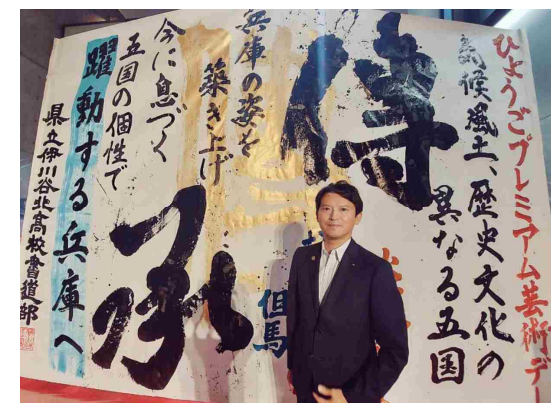 ひょうごプレミアム芸術デー
気候風土、歴史文化の
異なる五国
侍
兵庫の姿を
築き上げ
今に息づく
五国の個性で
躍動する兵庫へ
承
但馬
県立伊川谷北高校書道部